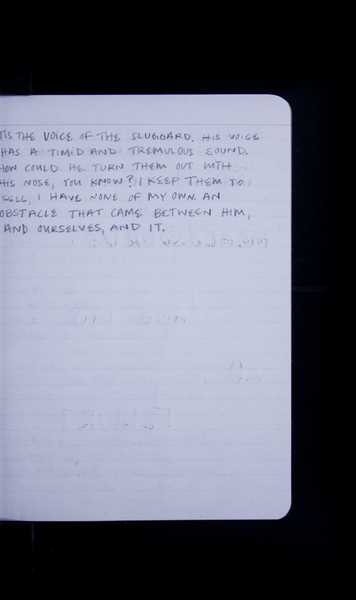 TIS THE VOICE OF THE SLUGGARD. HIS VOICE
HAS A TIMID AND TREMULOUS SOUND.
HOW COULD HE TURN THEM OUT WITH
HIS NOSE, YOU KNOW? I KEEP THEM TO
SELL. I HAVE NONE OF MY OWN. AN
OBSTACLE THAT CAME BETWEEN HIM,
AND OURSELVES, AND IT.